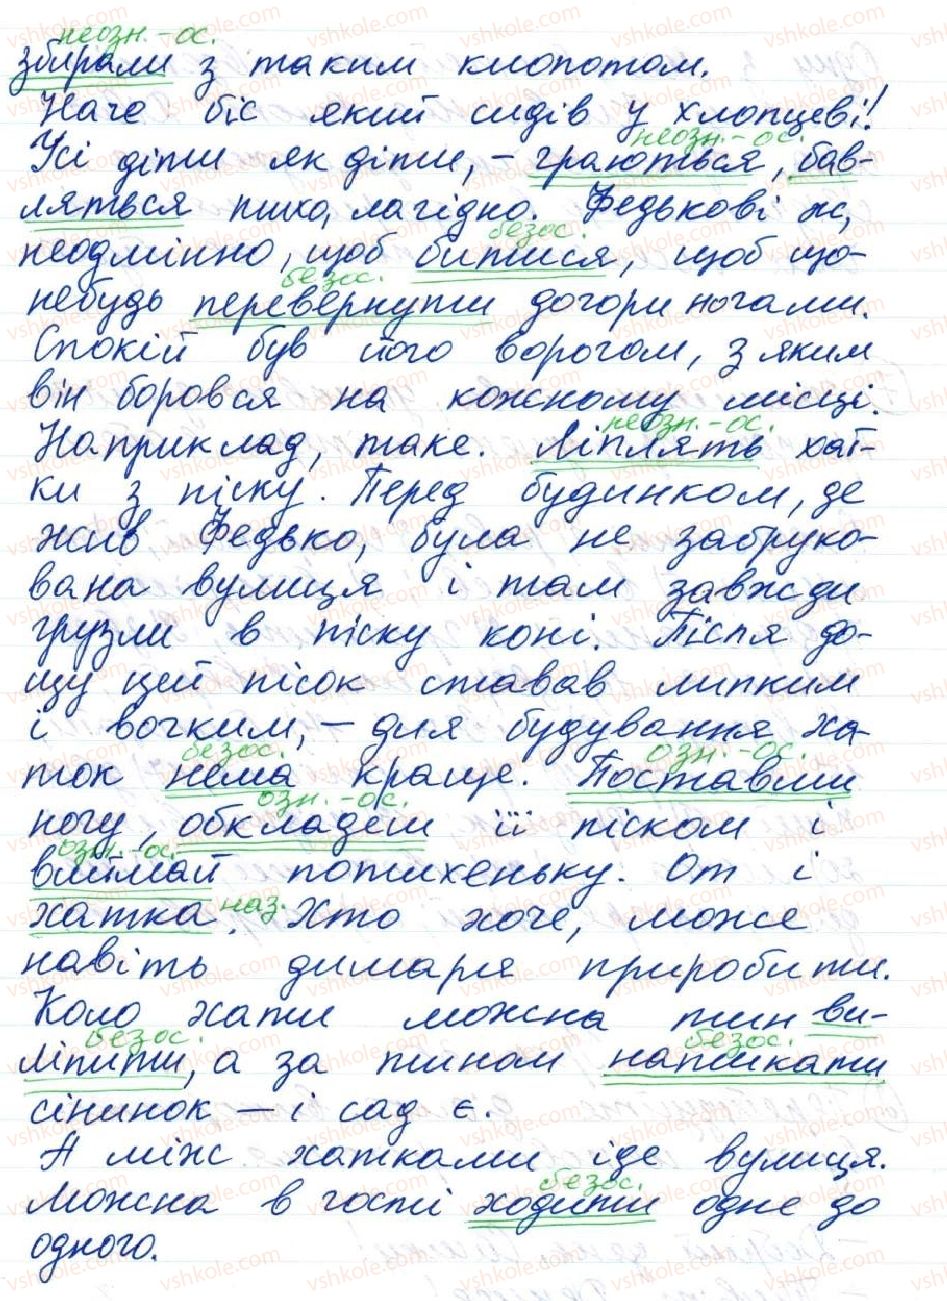 неозн.-ос.
збирали з таким клопотом.
Наче біс який сидів у хлопцеві!
неозн.-ос.
Усі діти як діти, – граються, бав-
ляться тихо, лагідно. Федькові ж,
безос.
неодмінно, щоб битися, щоб що-
безос.
небудь перевернути догори ногами.
Спокій був його ворогом, з яким
він боровся на кожному місці.
неозн.-ос.
Наприклад, таке. Ліплять хат-
ки з піску. Перед будинком, де
жив Федько, була не забруко-
вана вулиця і там завжди
грузли в піску коні. Після до-
щу цей пісок ставав липким
і вогким, – для будування ха-
безос. озн.-ос.
ток нема краще. Поставши
озн.-ос.
ногу, обкладеш її піском і
озн.-ос.
виймай потихеньку. От і
хатка наз. Хто хоче, може
навіть димаря приробити.
Коло хати можна тин ви-
безос. безос.
ліпити, а за тином натикати
сінинок – і сад є.
А між хатками іде вулиця.
безос.
Можна в гості ходити одне до
одного.